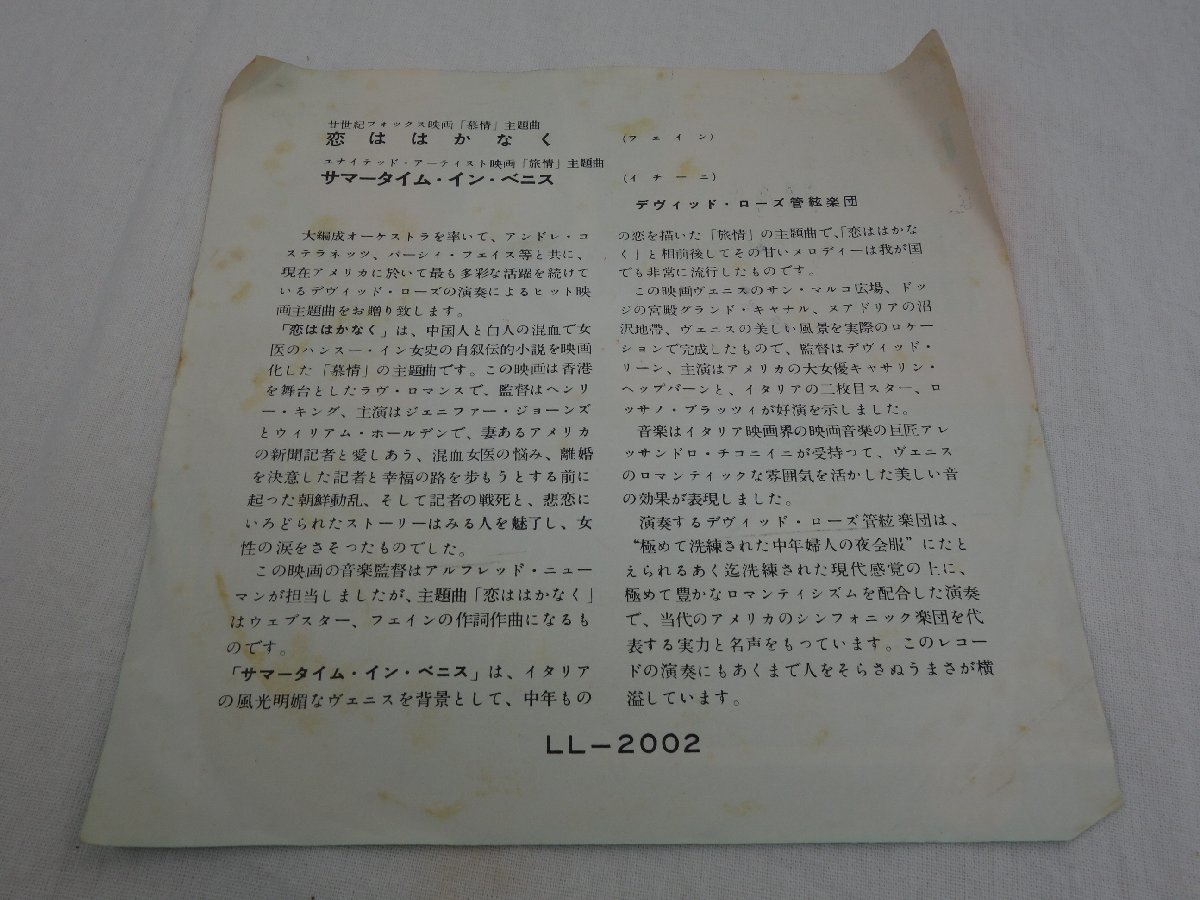 廿世紀フォックス映画「慕情」主題曲
恋ははかなく (フェイン)
ユナイテッド・アーティスト映画「旅情」主題曲
サマータイム・イン・ベニス (イチーニ)
デヴィッド・ローズ管絃楽団
大編成オーケストラを率いて、アンドレ・コ
ステラネッツ、パーシィ・フェイス等と共に、
現在アメリカに於いて最も多彩な活躍を続けて
いるデヴィッド・ローズの演奏によるヒット映
画主題曲をお贈り致します。
「恋ははかなく」は、中国人と白人の混血で女
医のハンスー・イン女史の自叙伝的小説を映画
化した「慕情」の主題曲です。この映画は香港
を舞台としたラヴ・ロマンスで、監督はヘンリ
ー・キング、主演はジェニファー・ジョーンズ
とウィリアム・ホールデンで、妻あるアメリカ
の新聞記者と愛しあう、混血女医の悩み、離婚
を決意した記者と幸福の路を歩もうとする前に
起った朝鮮動乱、そして記者の戦死と、悲恋に
いろどられたストーリーはみる人を魅了し、女
性の涙をさそったものでした。
この映画の音楽監督はアルフレッド・ニュー
マンが担当しましたが、主題曲「恋ははかなく」
はウェブスター、フェインの作詞作曲になるも
のです。
「サマータイム・イン・ベニス」は、イタリア
の風光明媚なヴェニスを背景として、中年もの
の恋を描いた「旅情」の主題曲で、「恋ははかな
く」と相前後してその甘いメロディーは我が国
でも非常に流行したものです。
この映画ヴェニスのサン・マルコ広場、ドッ
ジの宮殿グランド・キャナル、ヌアドリアの沼
沢地帯、ヴェニスの美しい風景を実際のロケー
ションで完成したもので、監督はデヴィッド・
リーン、主演はアメリカの大女優キャサリン・
ヘップバーンと、イタリアの二枚目スター、ロ
ッサノ・ブラッツィが好演を示しました。
音楽はイタリア映画界の映画音楽の巨匠アレ
ッサンドロ・チコニイニが受持つて、ヴェニス
のロマンティックな雰囲気を活かした美しい音
の効果が表現しました。
演奏するデヴィッド・ローズ管絃楽団は、
“極めて洗練された中年婦人の夜会服”にたと
えられるあく迄洗練された現代感覚の上に、
極めて豊かなロマンティシズムを配合した演奏
で、当代のアメリカのシンフォニック楽団を代
表する実力と名声をもつています。このレコー
ドの演奏にもあくまで人をそらさぬうまさが横
溢しています。
LL-2002